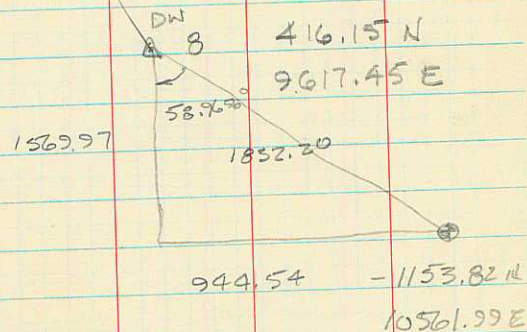 DW
8
416.15 N
9617.45 E
1569.97
1832.20
944.54
-1153.82 N
10561.99 E